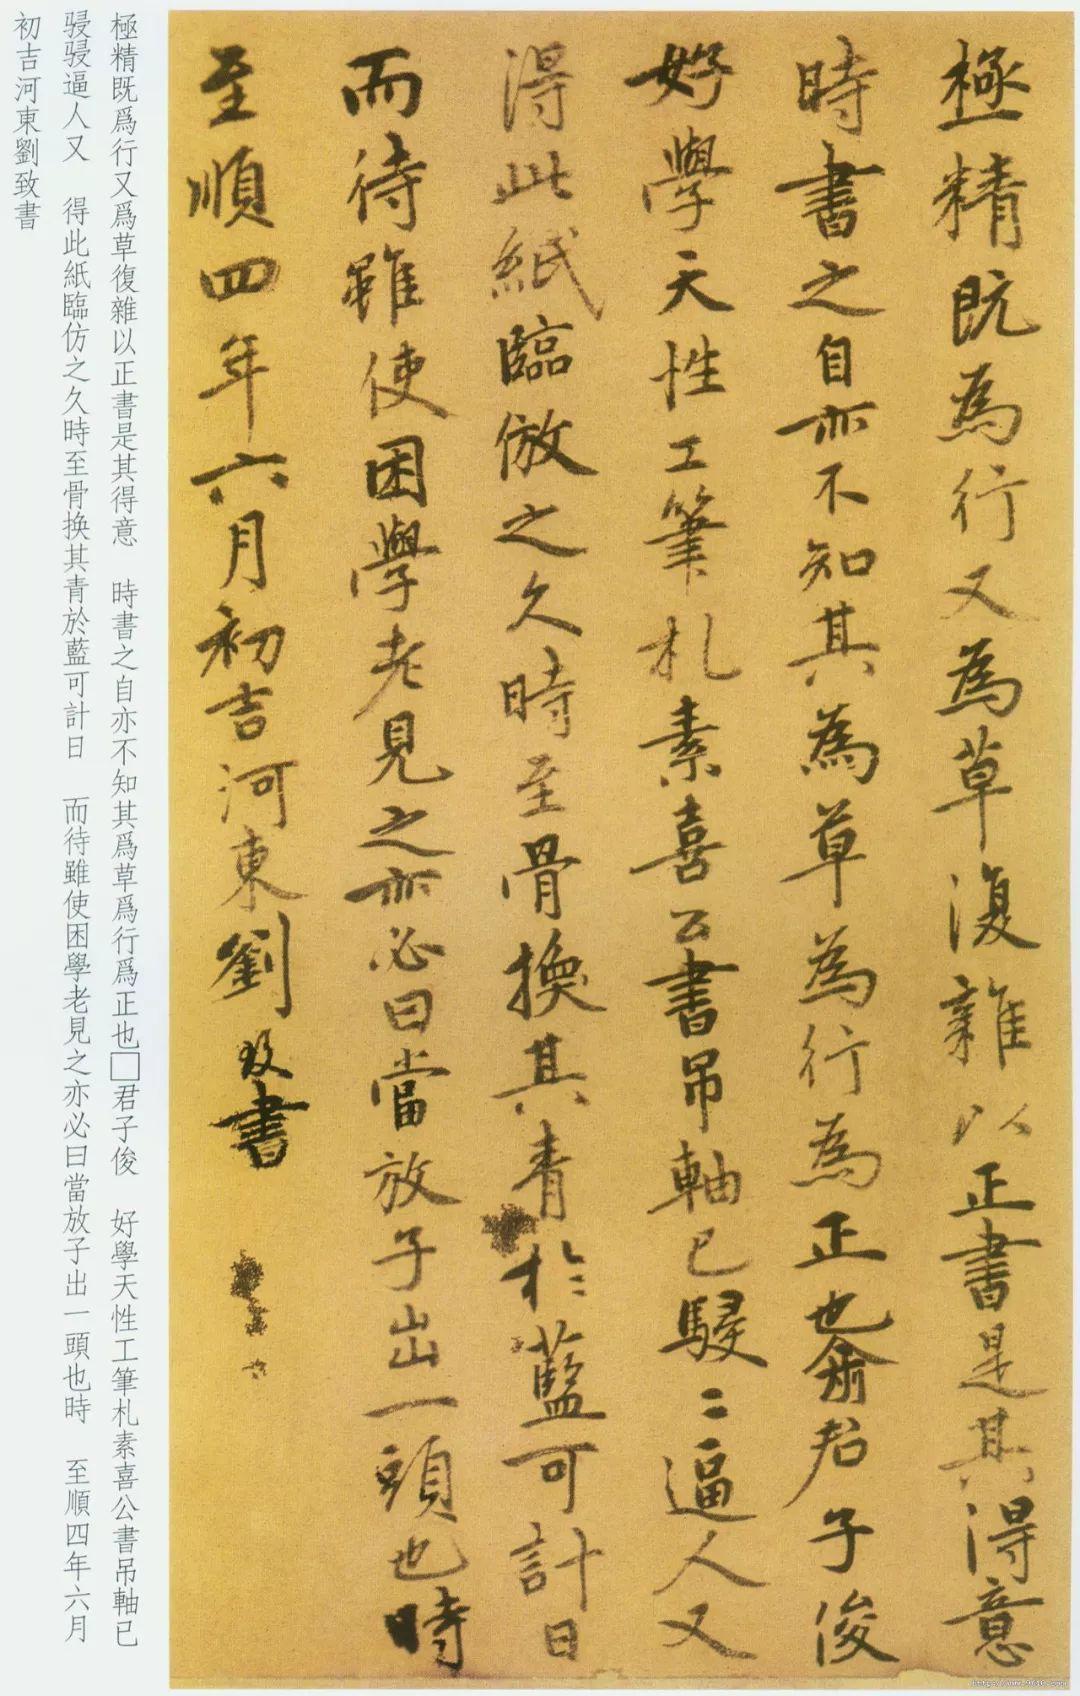 極精既為行又為草復雜以正書是其得意
時書之自亦不知其為草為行為正也俞君子俊
好學天性工筆札素喜公書吊軸已駸〻逼人又
得此紙臨倣之久時至骨換其青於藍可計日
而待雖使困學老見之亦必曰當放子出一頭也時
至順四年六月初吉河東劉致書
極精既爲行又爲草復雜以正書是其得意　時書之自亦不知其爲草爲行爲正也□君子俊　好學天性工筆札素喜公書吊軸已
駸駸逼人又　得此紙臨仿之久時至骨換其青於藍可計日　而待雖使困學老見之亦必曰當放子出一頭也時　至順四年六月
初吉河東劉致書